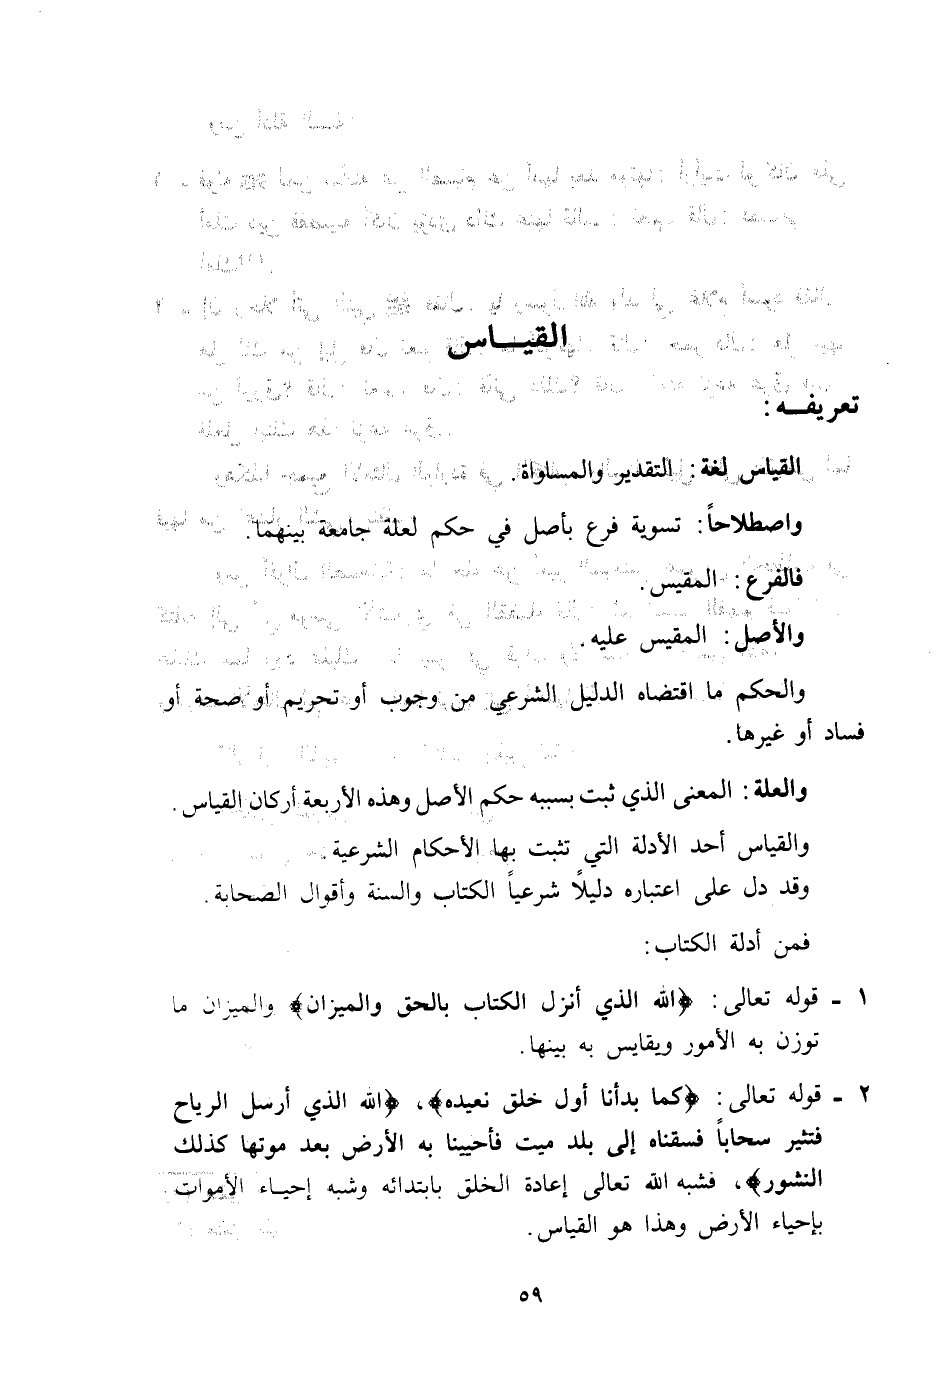 القيـــاس
تعريفــه:
القياس لغة: التقدير والمساواة.
واصطلاحاً: تسوية فرع بأصل في حكم لعلة جامعة بينهما.
فالفرع: المقيس.
والأصل: المقيس عليه.
والحكم ما اقتضاه الدليل الشرعي من وجوب أو تحريم أو صحة أو
فساد أو غيرها.
والعلة: المعنى الذي ثبت بسببه حكم الأصل وهذه الأربعة أركان القياس.
والقياس أحد الأدلة التي تثبت بها الأحكام الشرعية.
وقد دل على اعتباره دليلاً شرعياً الكتاب والسنة وأقوال الصحابة.
فمن أدلة الكتاب:
١ ـ قوله تعالى: ﴿الله الذي أنزل الكتاب بالحق والميزان﴾ والميزان ما
توزن به الأمور ويقايس به بينها.
٢ ـ قوله تعالى: ﴿كما بدأنا أول خلق نعيده﴾، ﴿الله الذي أرسل الرياح
فتثير سحاباً فسقناه إلى بلد ميت فأحيينا به الأرض بعد موتها كذلك
النشور﴾، فشبه الله تعالى إعادة الخلق بابتدائه وشبه إحيـاء الأموات
بإحياء الأرض وهذا هو القياس.
٥٩